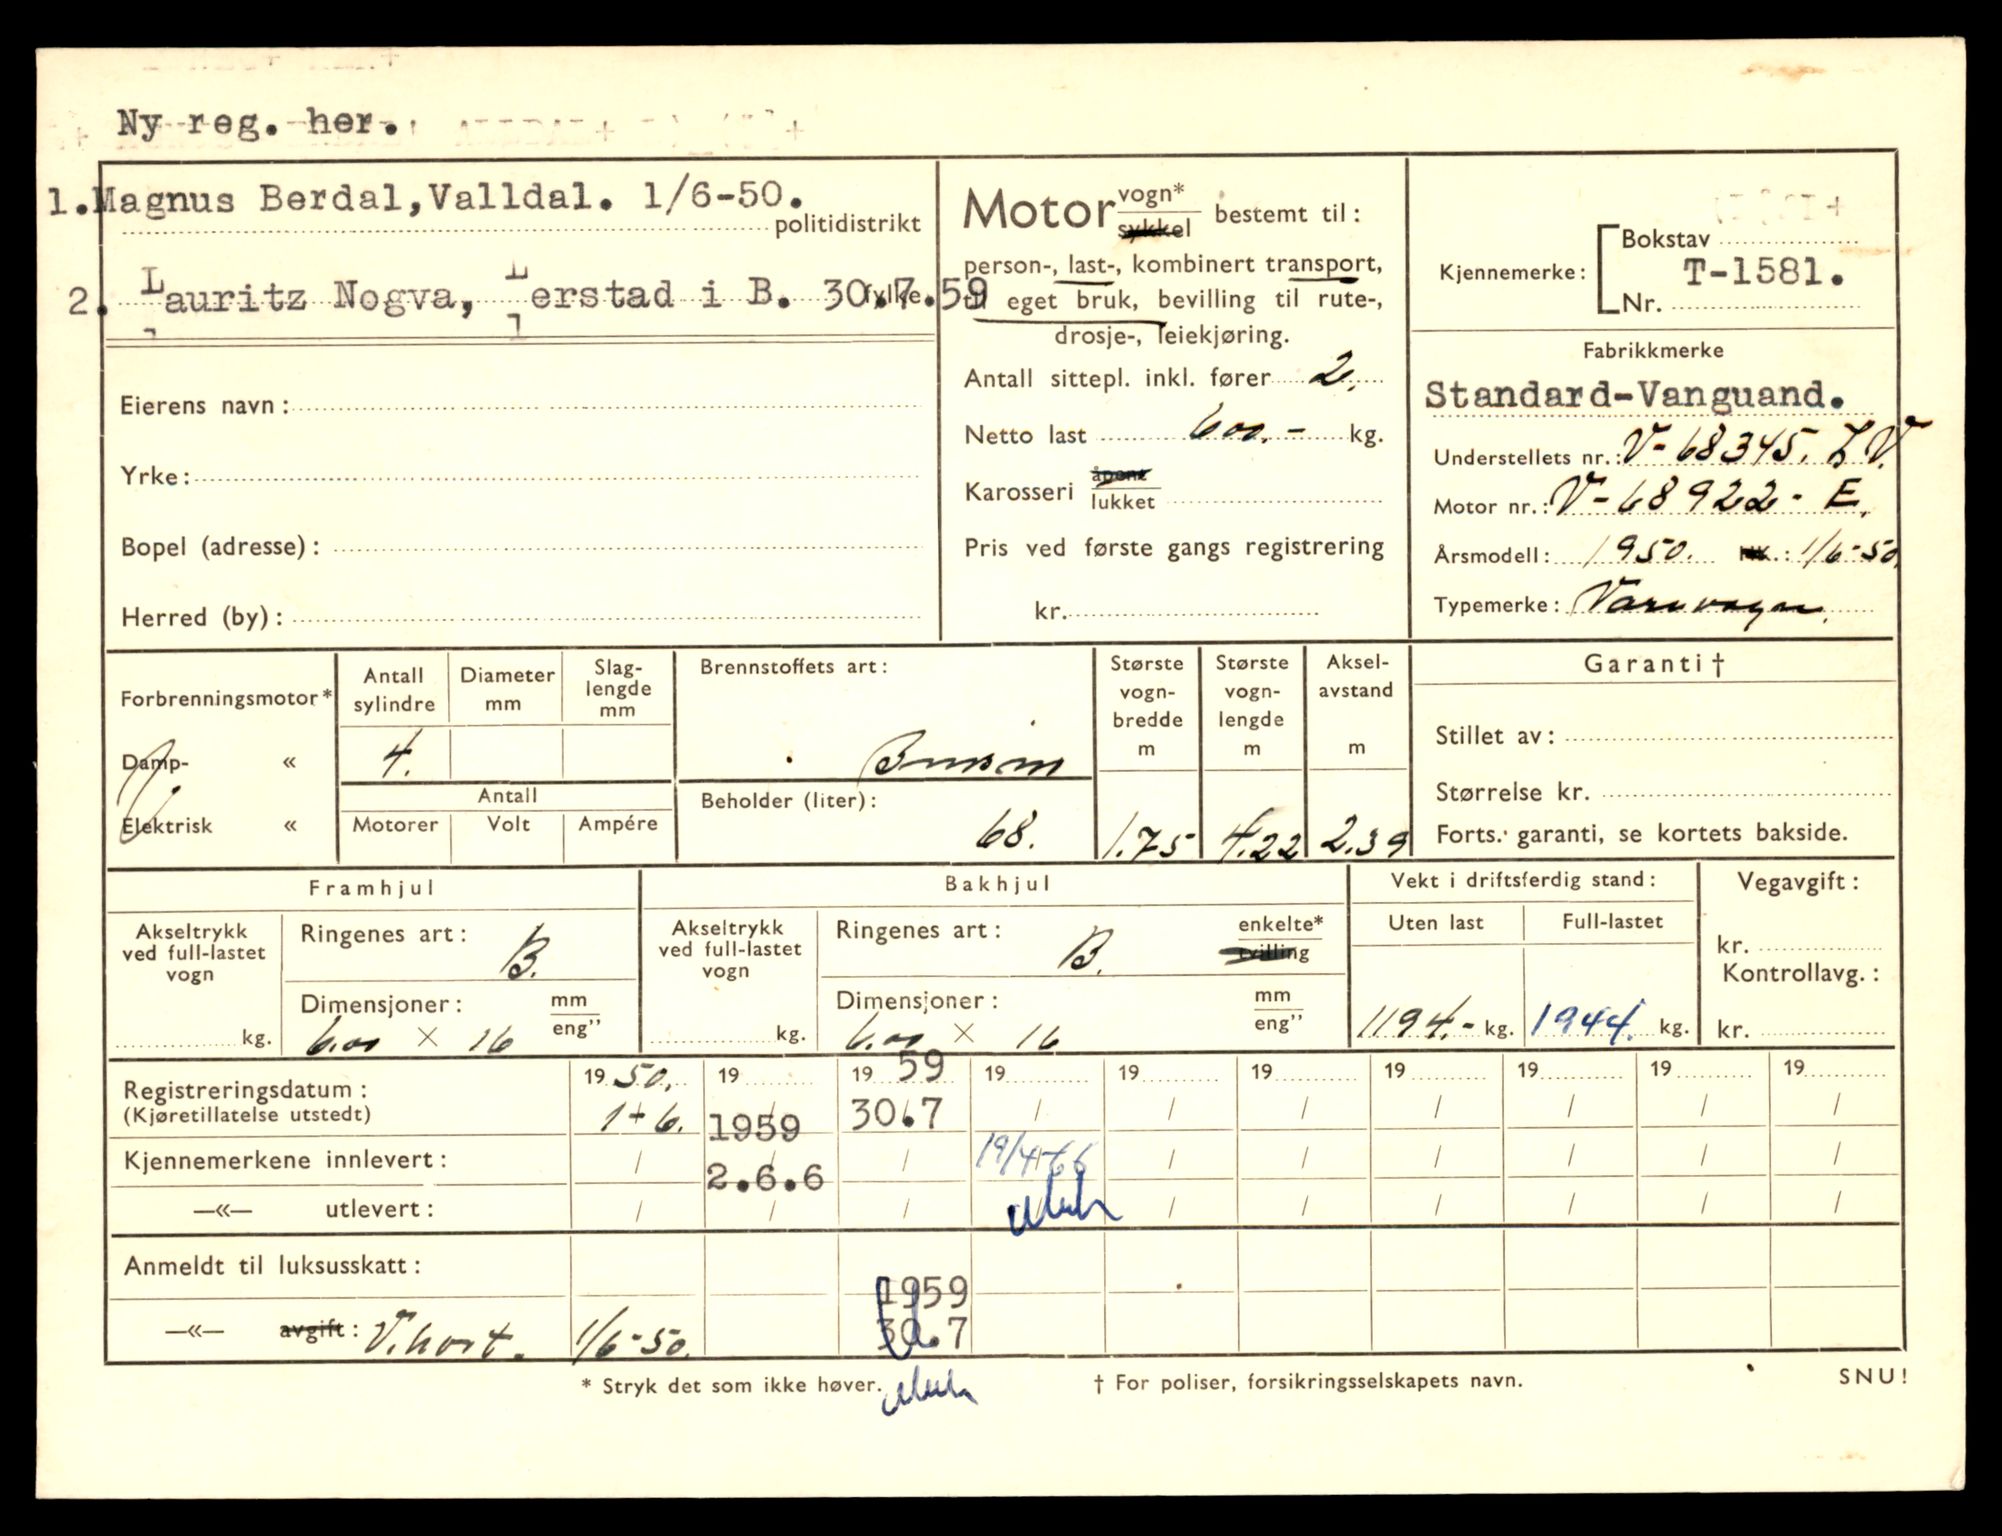 Ny reg. her.
1. Magnus Berdal, Valldal. 1/6-50.
politidistrikt
2. Lauritz Nogva, Lerstad i B. 30.7.59
fylke
Eierens navn:
Yrke:
Bopel (adresse):
Herred (by):
Motor vogn* sykkel bestemt til:
person-, last-, kombinert transport,
til eget bruk, bevilling til rute-,
drosje-, leiekjøring.
Antall sittepl. inkl. fører 2.
Netto last 600.- kg.
Karosseri åpent lukket
Pris ved første gangs registrering
kr.
Kjennemerke: Bokstav
T-1581.
Nr.
Fabrikkmerke
Standard-Vanguand.
Understellets nr.: V-68345. Z V.
Motor nr.: V-68922- E.
Årsmodell: 1950. HK.: 1/6-50.
Typemerke: Varevogn.
Forbrenningsmotor*
Damp- «
Elektrisk «
Antall sylindre
4.
Diameter mm
Slag-lengde mm
Antall
Motorer Volt Ampére
Brennstoffets art:
Bensin
Beholder (liter):
68.
Største vogn-bredde m
1.75
Største vogn-lengde m
4.22
Aksel-avstand m
2.39
Garanti†
Stillet av:
Størrelse kr.
Forts. garanti, se kortets bakside.
Framhjul
Akseltrykk
ved full-lastet
vogn
kg.
Ringenes art: B.
Dimensjoner: mm eng”
6.00 × 16
Bakhjul
Akseltrykk
ved full-lastet
vogn
kg.
Ringenes art: B. enkelte* tvilling
Dimensjoner: mm eng”
6.00 × 16
Vekt i driftsferdig stand:
Uten last Full-lastet
1194.- kg. 1944. kg.
Vegavgift:
kr.
Kontrollavg.:
kr.
Registreringsdatum: 19 50. 19 19 59 19 19 19 19 19 19 19
(Kjøretillatelse utstedt) 1 + 6. 1959 30.7 / / / / / / /
Kjennemerkene innlevert: / 2.6.6 / 19/4-66 / / / / / /
—«— utlevert: / / / / / / / / /
Anmeldt til luksusskatt:
1959
—«— avgift: V.kort. 1/6-50. 30.7
* Stryk det som ikke høver.
† For poliser, forsikringsselskapets navn.
SNU!